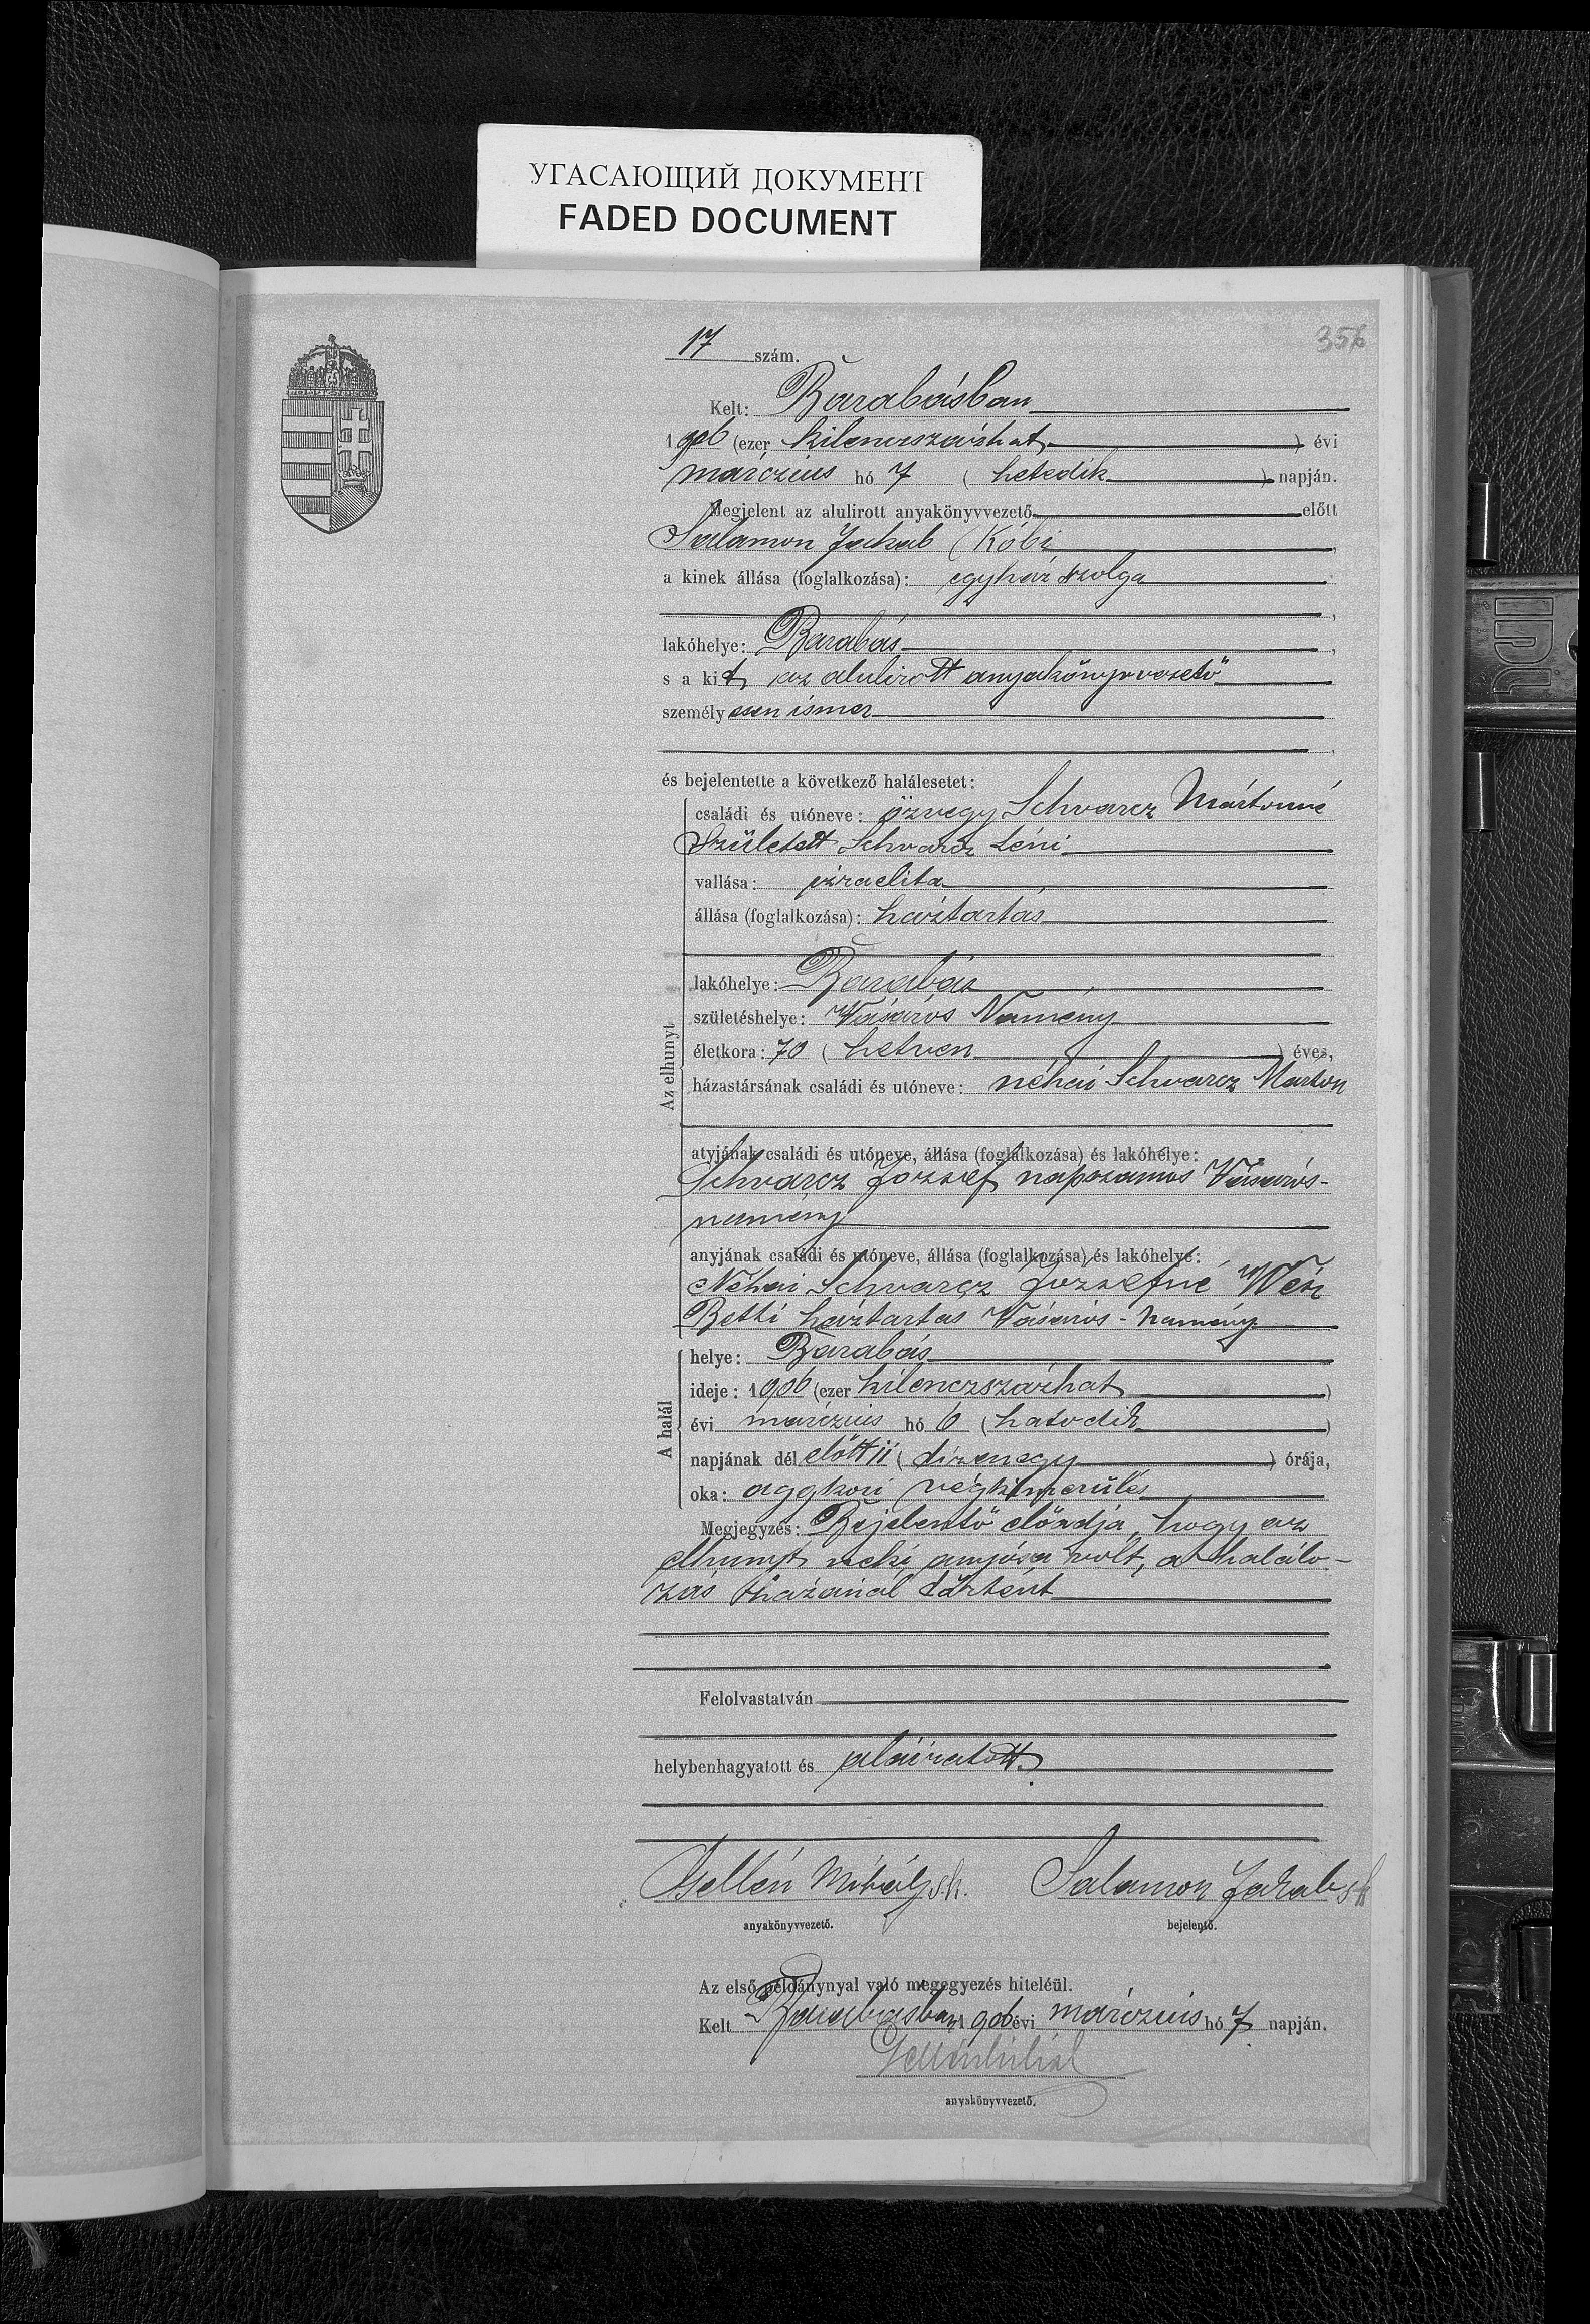 УГАСАЮЩИЙ ДОКУМЕНТ
FADED DOCUMENT
356
17 szám.
Kelt: Barabásban
1906 (ezer kilenczszázhat) évi
márczius hó 7 (hetedik) napján.
Megjelent az alulirott anyakönyvvezető előtt
Salamon Jakab (Kóbi
a kinek állása (foglalkozása): egyház szolga
lakóhelye: Barabás
s a kit az alulirott anyakönyvvezető
személyesen ismer
és bejelentette a következő halálesetet:
Az elhunyt
családi és utóneve: özvegy Schvarcz Mártonné
Született Schvarcz Léni
vallása: izraelita
állása (foglalkozása): háztartás
lakóhelye: Barabás
születéshelye: Vásáros Namény
életkora: 70 (hetven) éves,
házastársának családi és utóneve: néhai Schvarcz Márton
atyjának családi és utóneve, állása (foglalkozása) és lakóhelye:
Schvarcz József napszámos Vásáros-
namény
anyjának családi és utóneve, állása (foglalkozása) és lakóhelye:
Néhai Schvarcz Józsefné
Betti háztartás Vásáros-Namény
A halál
helye: Barabás
ideje: 1906 (ezer kilenczszázhat)
évi márczius hó 6 (hatodik)
napjának dél előtt 11 (tizenegy) órája,
oka: aggkori végkimerülés
Megjegyzés: Bejelentő előadja, hogy az
elhunyt neki anyósa volt, a halálo-
zás házánál történt
Felolvastatván
helybenhagyatott és aláiratott.
Gellén Mihály s.k. Salamon Jakab s.k.
anyakönyvvezető. bejelentő.
Az első példánynyal való megegyezés hiteléül.
Kelt Barabásban 1906 évi márczius hó 7 napján.
Gellén Mihály
anyakönyvvezető.